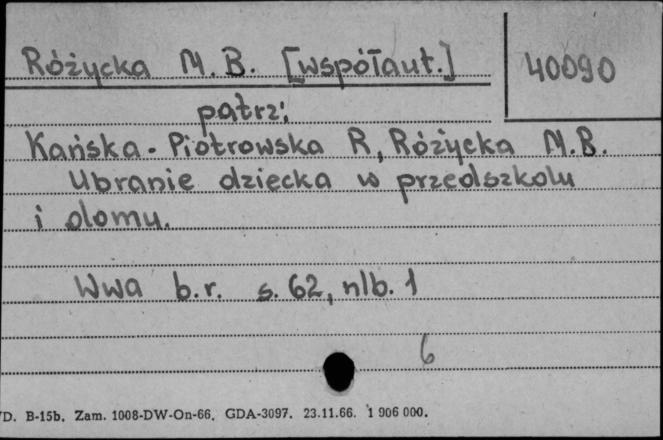 Różycka M. B. [współaut.]
40090
patrz:
Kańska-Piotrowska R, Różycka M.B.
Ubranie dziecka w przedszkolu
i domu.
Wwa b.r. s. 62, nlb. 1
6
D. B-15b. Zam. 1008-DW-On-66. GDA-3097. 23.11.66. 1 906 000.